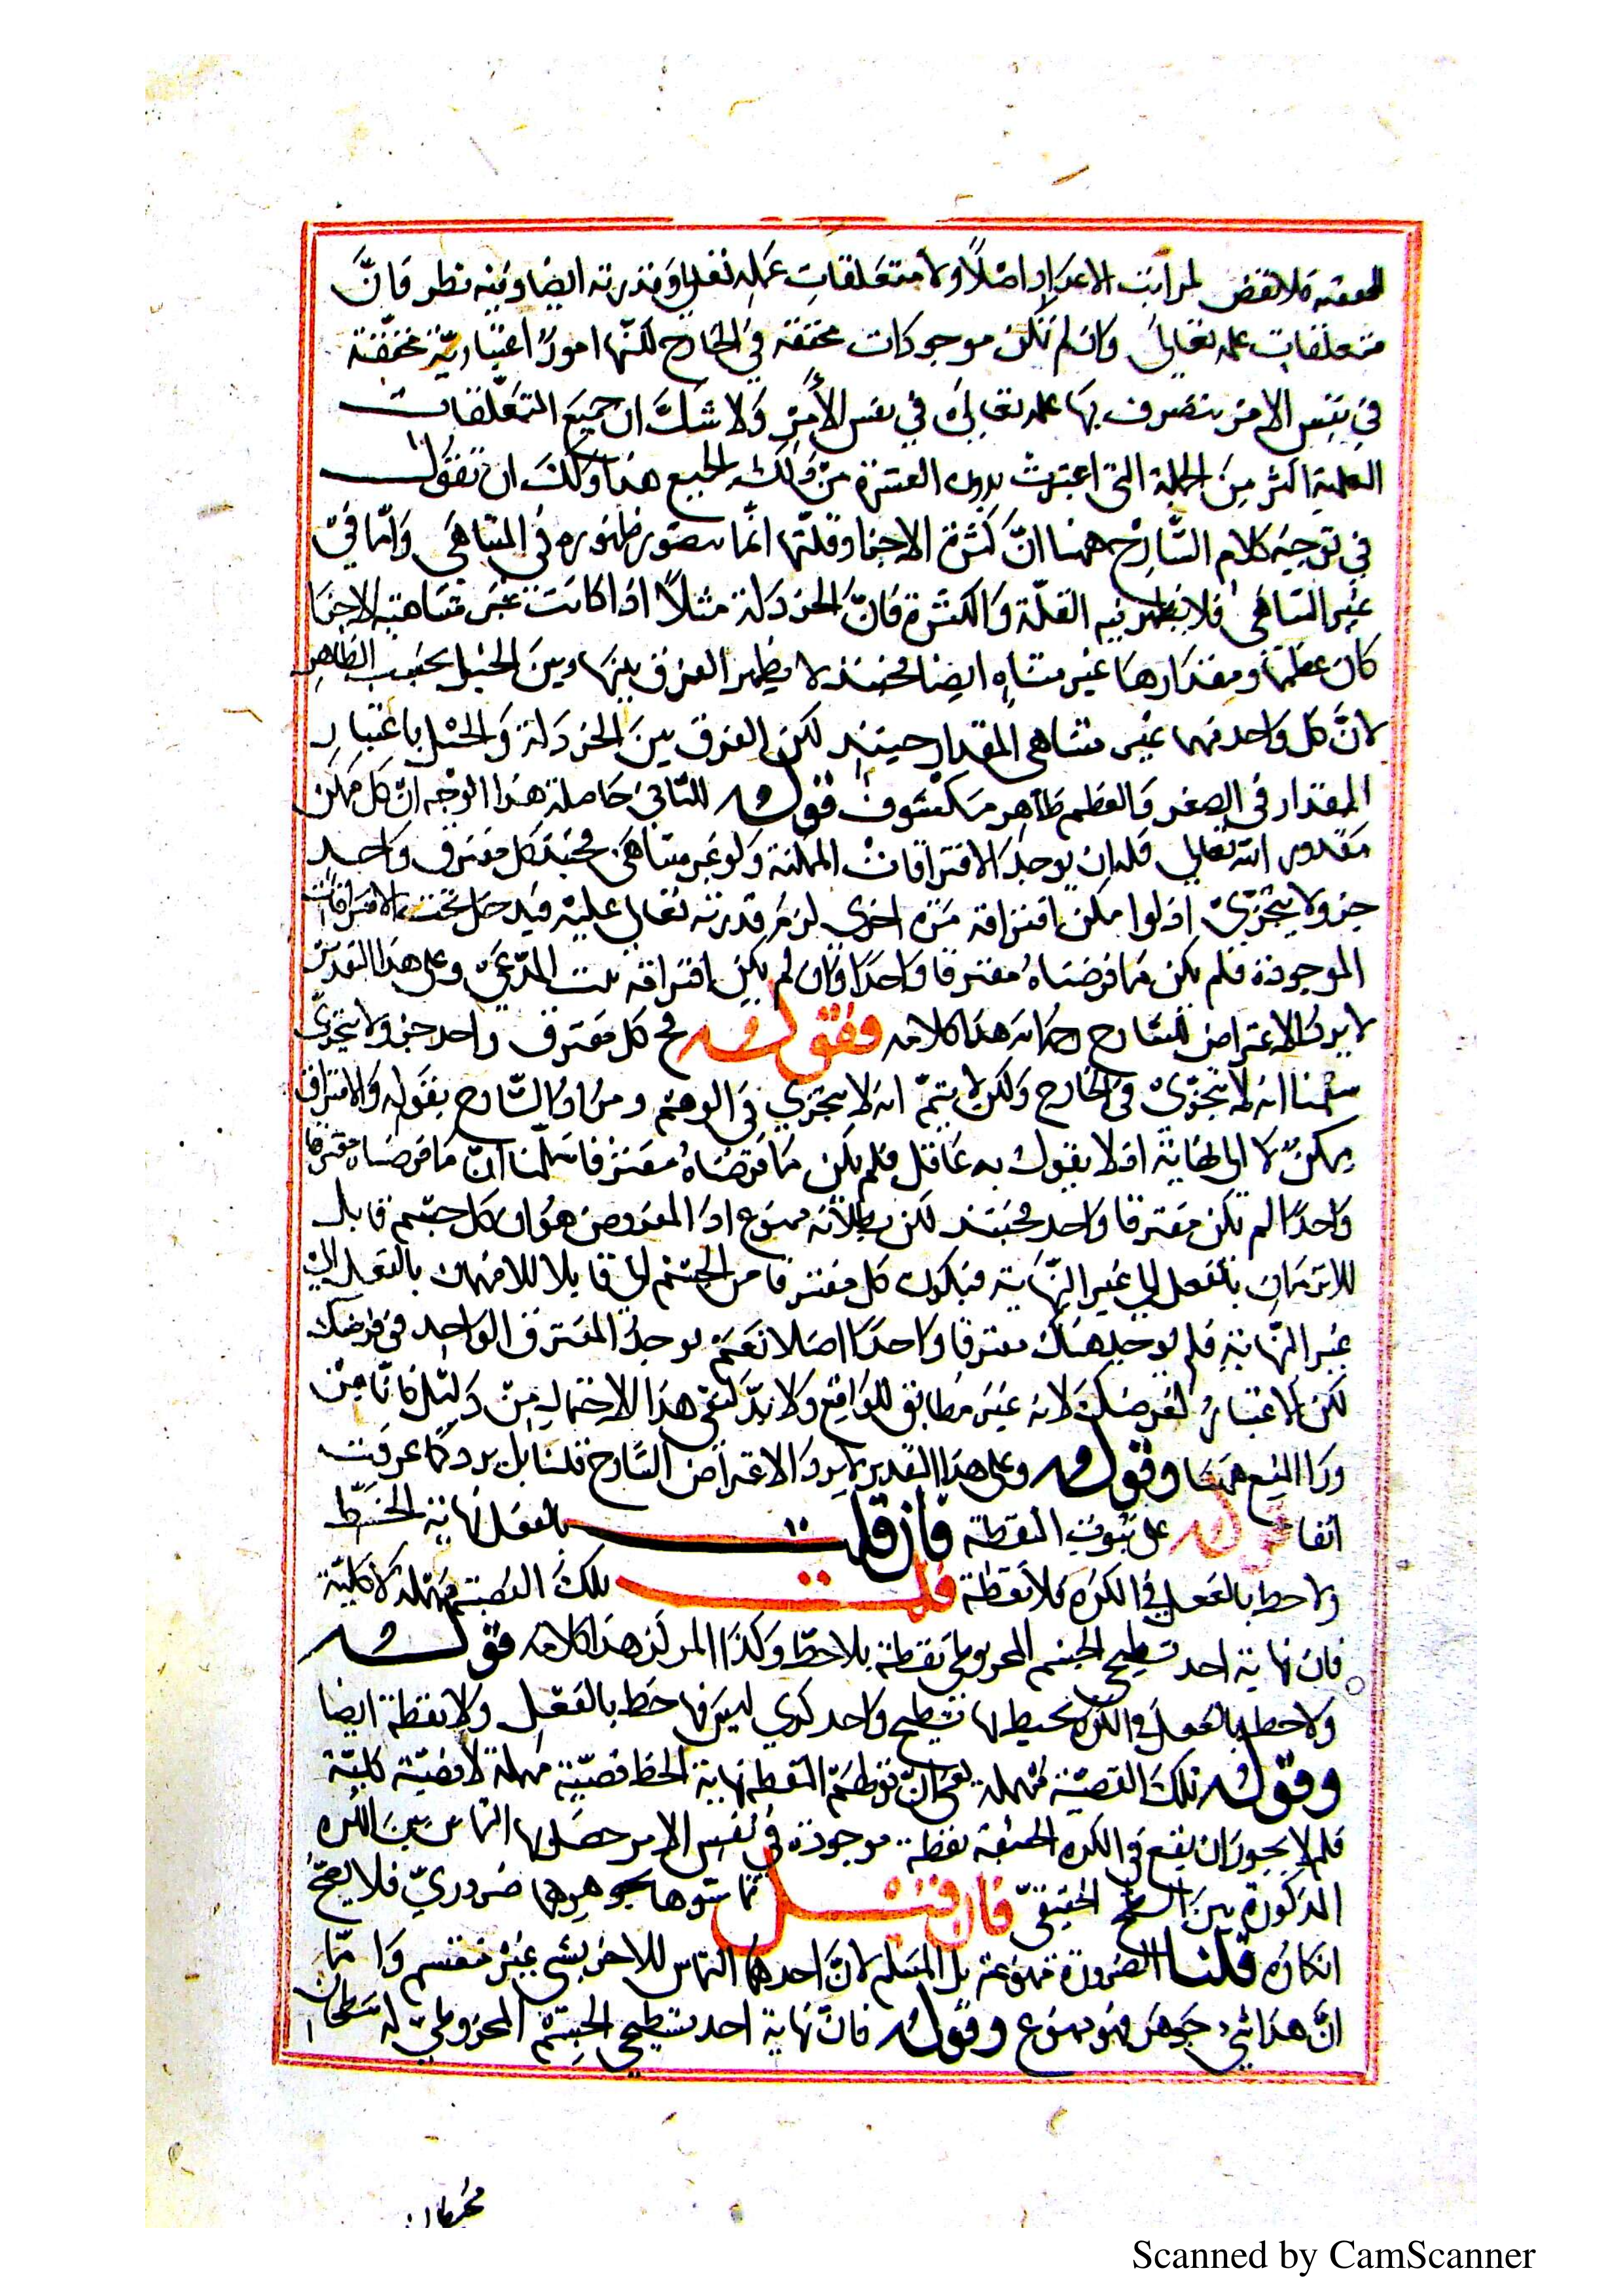 المحققة فلا نقض لمراتب الاعداد اصلاً ولا متعلقات علمه تعالى وقدرته ايضا وفيه نظر فانَّ
متعلقات علمه تعالى وان لم تكن موجودات محققة في الخارج لكنّها امورٌ اعتباريّة محققة
في نفس الامر يتصرف بها علمه تعالى في نفس الأمرِ وَلا شكَّ ان جميع التعلقات
العلمية اكثر مِنَ الجملة التى اعتبرت بدون العشرة من ذلك الجميع هذا ولك ان تقول
في توجيه كلام الشّارح ههنا انَّ كثرة الاجزا وقلّتها انّما يتصور ظهوره في المتناهى وَامّا في
غير المتناهى فلا يظهر فيه القلّة وَالكثرة فانَّ الخردلة مثلاً اذا كانت غير متناهية الاجزا
كان عظمها ومقدارها غير متناهٍ ايضا فحينئذ لا يظهر الفرق بينها وبين الجبل بحسب الظاهر
لانَّ كل واحد منهما غير متناهى المقدار حينئذ لكن الفرق بين الخردلة وَالجبل باعتبار
المقدار فى الصغر وَالعظم ظاهر مكشوف قوله الثانى حاصلة هذا الوجه انّ كل ممكن
مقدور الله تعالى فله ان يوجد الافتراقات الممكنة ولو غير متناهى فحينئذ كل مفترق واحد
جزء لا يتجزىّ اذ لو امكن افتراقه مرّة اخرى لزم قدرته تعالى عليه فيدخل تحت الافتراقات
الموجودة فلم يكن ما فرضناه مفترقا واحدا وان لم يكن افتراقه ثبت المدّعى وعلى هذا التقدير
لا يرد الاعتراض للشارح رحمه الله هذا كلامه فقوله فح كل مفترق واحد جزء لا يتجزىّ
سلّمنا انه لا يتجزّى فى الخارج ولكن لا يتمّ انه لا يتجزي في الوهم ومراد الشّارح بقوله وَالافتراق
ممكن لا الى نهاية اذ لا يقول به عاقل فلم يكن ما فرضناه مفترقا سلّمنا انّ ما فرضناه مفترقا
واحدًا لم يكن مفترقا واحد فحينئذ لكن بطلانه ممنوع اذ المفروض هوان كل جسم قابل
للانقسام بالفعل الى غير النّهاية فيكون كل مفترقا من الجسم قابلا للانقسام بالفعل الى
غير النّهاية فلم يوجد هناك مفترقا واحدًا اصلا نعم يوجد المفترق الواحد في فرضك
لكن لا اعتبار لفرضك لانه غير مطابق للواقع ولا بدّ لنفى هذا الاحتمال من دليل فانّا من
ورا المنع ههنا وقوله وعلى هذا التقدير لا يرد الاعتراض الشّارح قلنا بل يرد كما عرفت
انفا قوله على ثبوت النقطة فان قلت بالفعل نهاية الخطّ
ولا خط بالفعل في الكره فلا نقطة قلت تلك القضيّة مهملة لا كلية
فان نهاية احد سطحى الجسم المخروطى نقطة بلا خط وكذا المركز هذا كلامه قوله
ولا خط بالفعل فى الكره يحيط لها سطح واحد كري ليس فيها خط بالفعل ولا نقطة ايضا
وقوله تلك القضيّة مهملة يعنى انّ قولهم النقطة نهاية الخط قضيّة مهملة لا قضيّة كلية
فلم لا يجوز ان يقع في الكره الحقيقة نقطة موجودة في نفس الامر حصلوها التماس بين الكره
المذكورة بين السطح الحقيقى فان قيل تماسّوها بجوهرها ضروريّ فلا يصحّ
انكاره قلنا الضرورة ممنوعة بل المسلم لانّ احدهما التماس للاخر بشى غير منقسم وَامّا
انّ هذا شىء جوهر فهو ممنوع وقوله فان نهاية احد سطحى الجسم المخروطى له سطحان
محيطان
Scanned by CamScanner